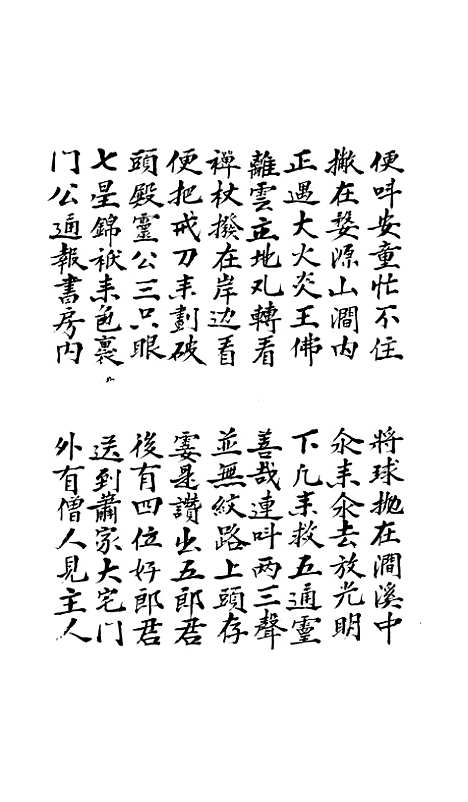 便叫安童忙不住
將球抛在澗溪中
撇在婺源山澗内
氽来氽去放光明
正遇大火炎王佛
下凢来救五通靈
離雲立地凢轉看
善哉連叫两三聲
禅杖撥在岸边看
並無紋路上頭存
便把戒刀来劃破
霎是讚出五郎君
頭殿靈公三只眼
後有四位好郎君
七星錦袱来包裹
送到蕭家大宅门
门公通報書房内
外有僧人見主人